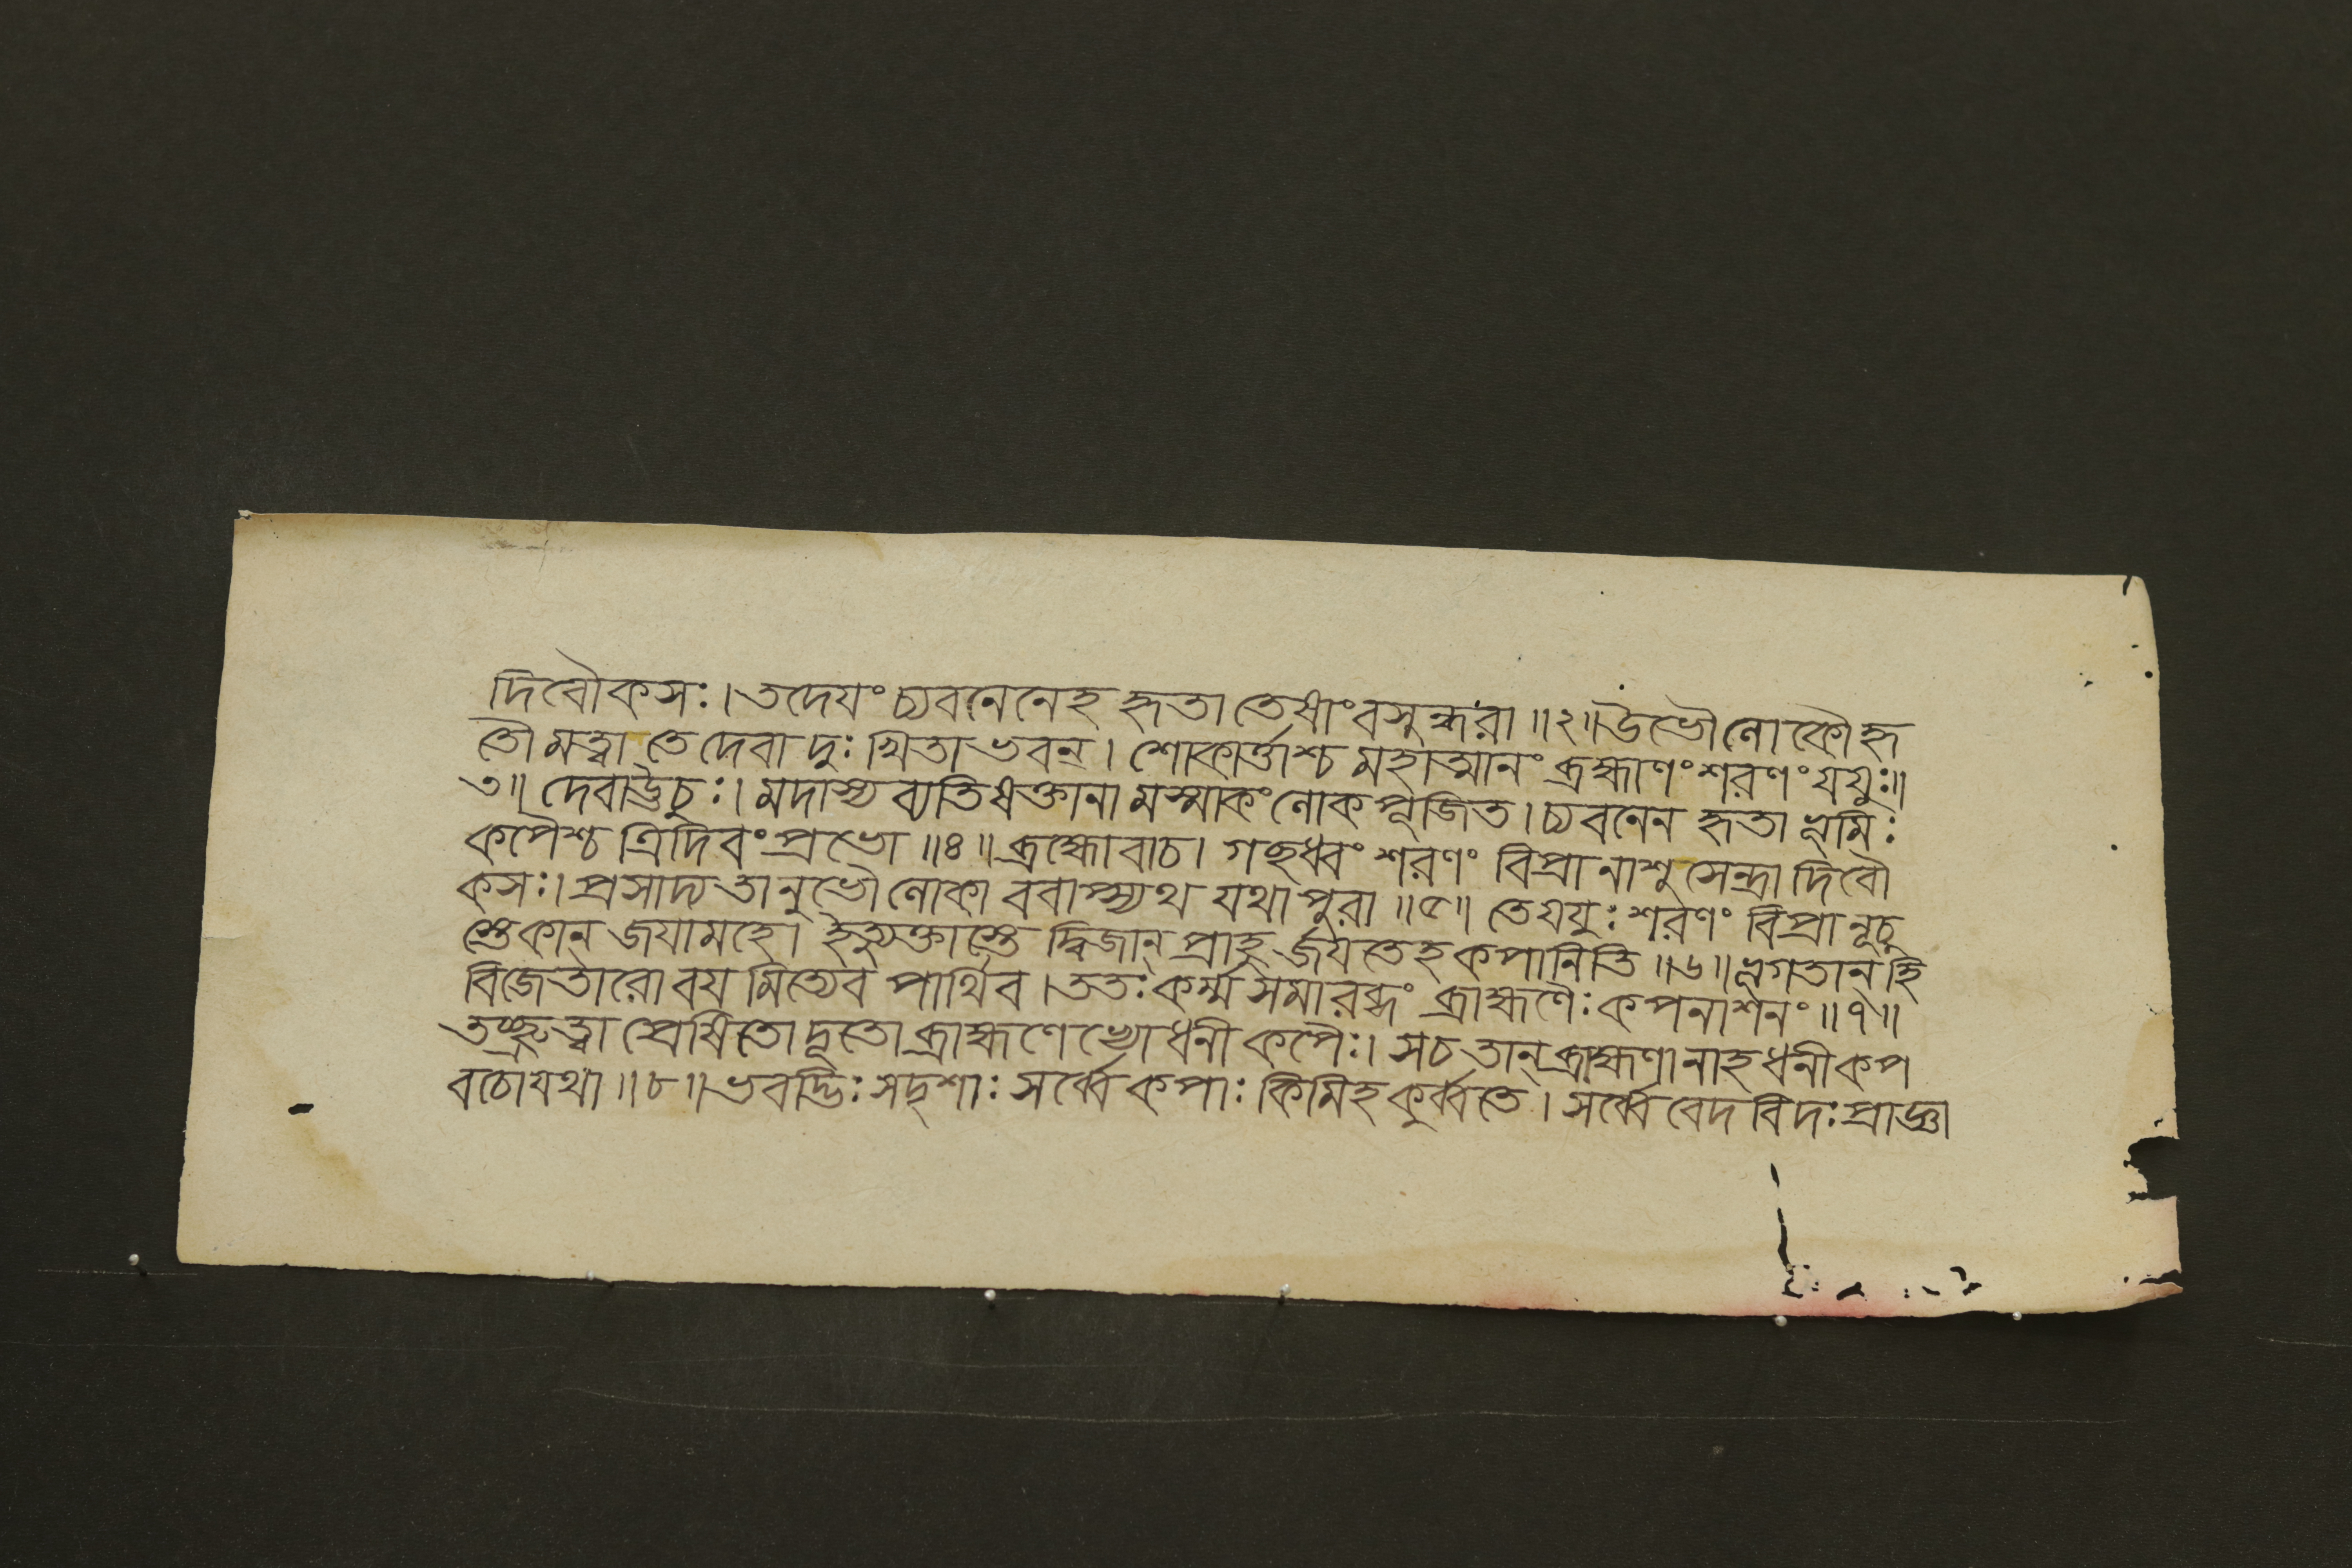 দিবৌকসঃ। তদেযং চ্যবনেনেহ হৃতা তেষাং বসুন্ধরা ॥২॥ উভৌ লোকৌ হৃ
তৌ মত্বা তে দেবা দুঃখিতা ভবন্। শোকার্ত্তাশ্চ মহাত্মানং ব্রহ্মাণং শরণং যযুঃ॥
৩॥ দেবাউচুঃ। মদাস্য ব্যতিষক্তানা মস্মাকং লোকপূজিত। চ্যবনেন হৃতা ভূমিঃ
কপৈশ্চ ত্রিদিবং প্রভো ॥৪॥ ব্রহ্মোবাচ। গচ্ছধ্বং শরণং বিপ্রানাশু সেন্দ্রা দিবৌ
কসঃ। প্রসাদ্য তানুভৌ লোকা ববাপ্স্যথ যথা পুরা ॥৫॥ তে যযুঃ শরণং বিপ্রানূচু
স্তে কান্ জযামহে। ইত্যুক্তাস্তে দ্বিজান্ প্রাহু র্জযতেহ কপানিতি ॥৬॥ ভূগতান্ হি
বিজেতারো বয মিত্যেব পার্থিব। ততঃ কর্ম্ম সমারব্ধং ব্রাহ্মণৈঃ কপনাশনং ॥৭॥
তচ্ছ্রুত্বা প্রেষিতো দূতো ব্রাহ্মণেভ্যো ধনী কপৈঃ। স চ তান্ ব্রাহ্মণানাহ ধনী কপ
বচো যথা ॥৮॥ ভবদ্ভিঃ সদৃশাঃ সর্ব্বে কপাঃ কিমিহ কুর্ব্বতে। সর্ব্বে বেদবিদঃ প্রাজ্ঞা